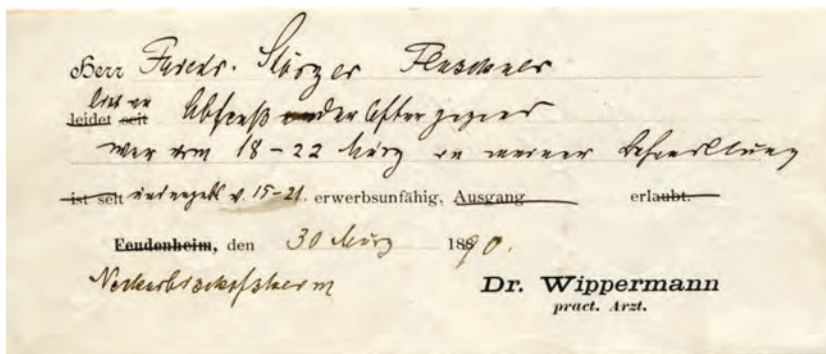 Herr Friedr. Störzer Flaschner
litt an
leidet seit Absceß an der Aftergegend
war vom 18-22 März in meiner Behandlung
ist seit und v. 15-21. erwerbsunfähig, Ausgang erlaubt.
Feudenheim, den 30 März 1890.
Neckarbischofsheim
Dr. Wippermann
pract. Arzt.